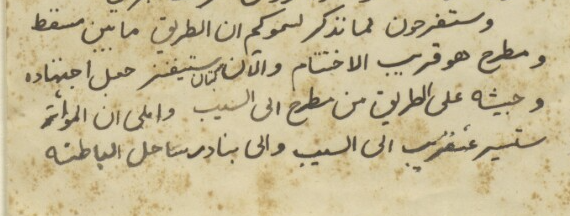 وستفرحون لما نذكر لسموكم ان الطريق ما بين مسقط
ومطرح هو قريب الاختتام والآن كبتان ستيفنز جعل اجتهاده
وجيشه على الطريق من مطرح الى السيب واملى ان المواتر
ستسير عنقريب الى السيب والى بنادر ساحل الباطنه